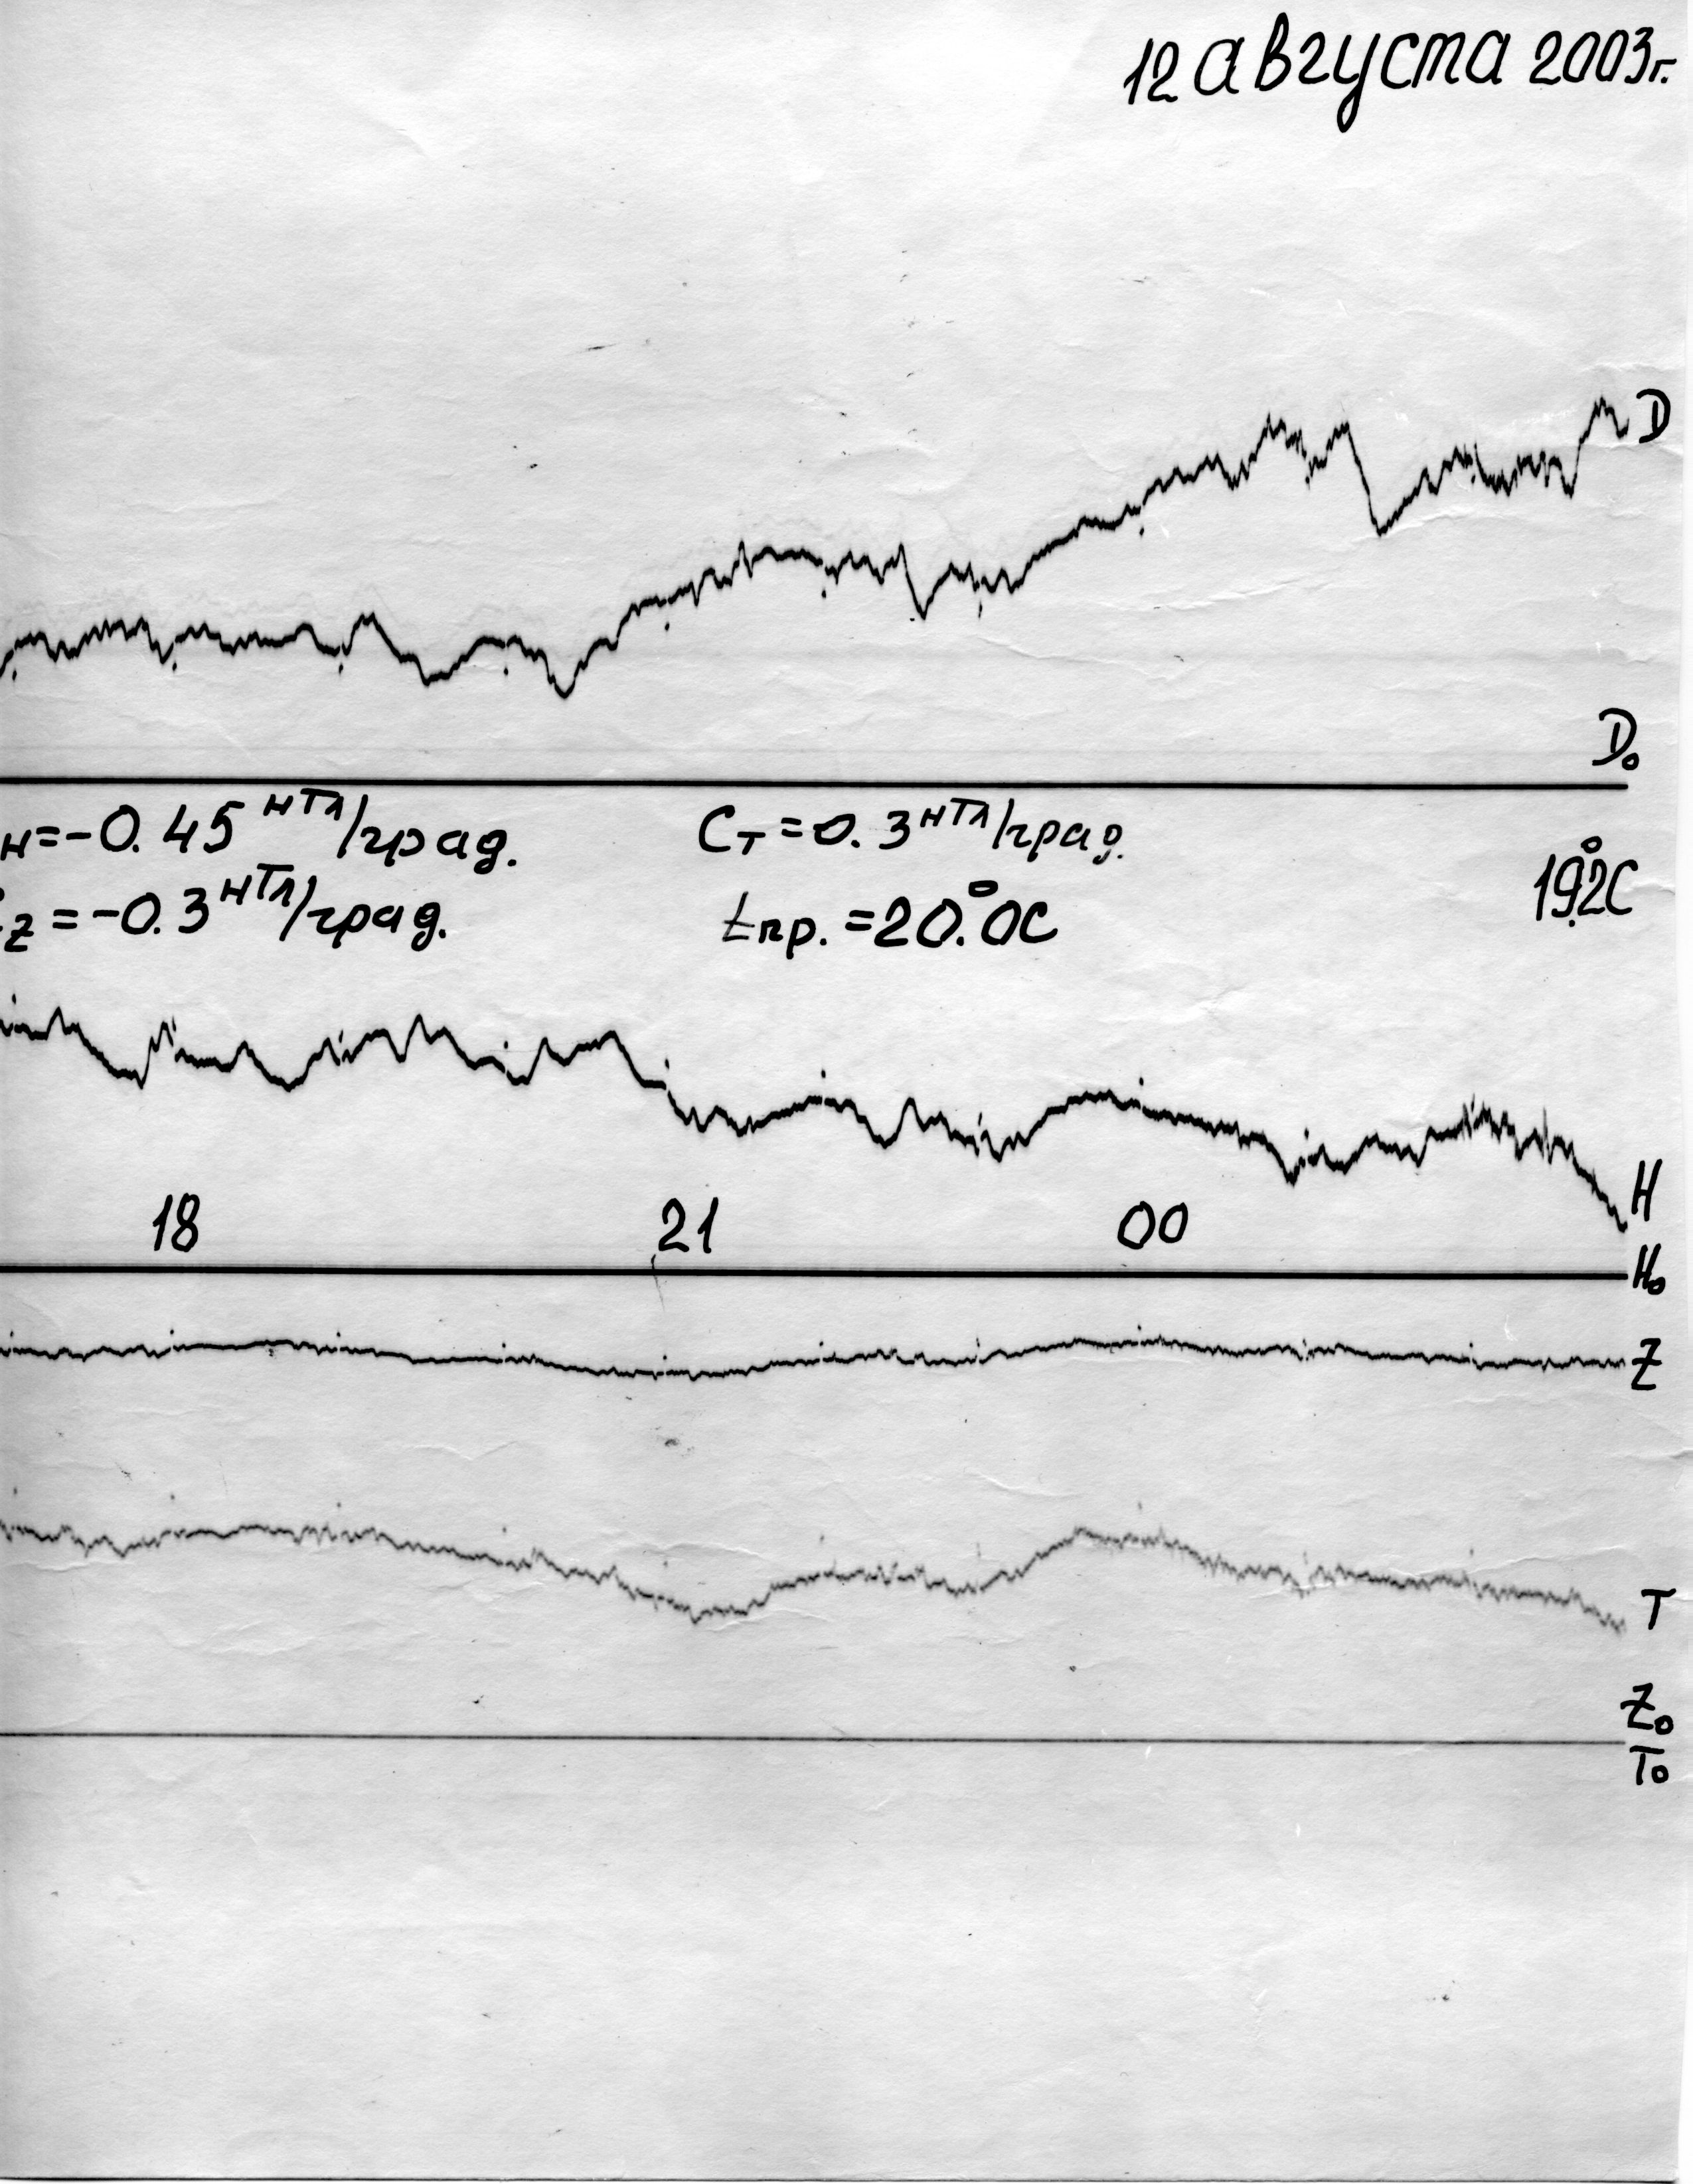 12 августа 2003г.
D
D₀
н=-0.45 нТл/град.
Cт=0.3 нТл/град.
z=-0.3 нТл/град.
tпр.=20.°0С
19.°2С
18
21
00
H
H₀
Z
T
Z₀
T₀